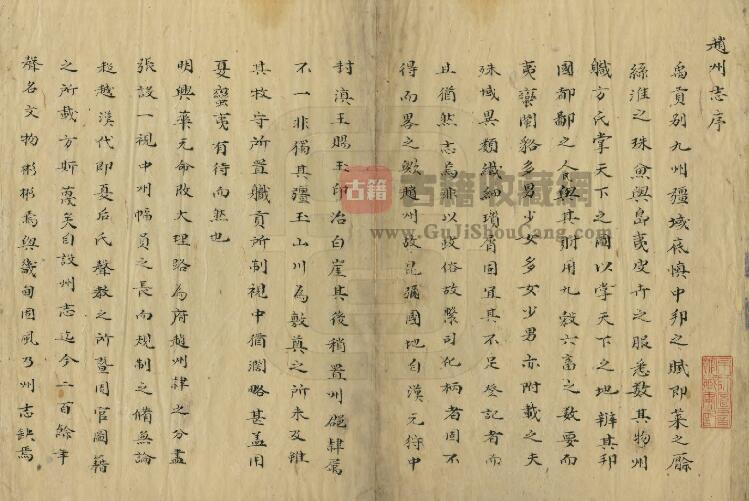 趙州志序
禹貢別九州疆域底慎中邦之賦即萊之檿
絲淮之珠魚與島夷皮卉之服悉數其物州
職方氏掌天下之圖以掌天下之地辨其邦
國都鄙之人民與其財用九穀六畜之數要而
夷蠻閩貉多男少女多女少男亦附載之夫
殊域異類纖細瑣屑固宜其不足登記者而
止猶然志焉非以政俗故繫司化柄者固不
得而畧之歟趙州故昆彌國地自漢元狩中
封滇王賜王印治白崖其後稍置州縣隸屬
不一非獨其疆王山川為敷奠之所未及雖
其牧守所置職貢所制視中猶濶略甚盖用
夏蠻夷有待而然也
明興革元命改大理路為府趙州隸之分畫
張設一視中州幅員之長而規制之備無論
超越漢代即夏后氏聲教之所暨周官圖籍
之所載方斯蔑矣自設州志迄今二百餘年
聲名文物彬彬焉與畿甸同風乃州志缺焉
古籍
古籍收藏網
www.GuJiShouCang.com